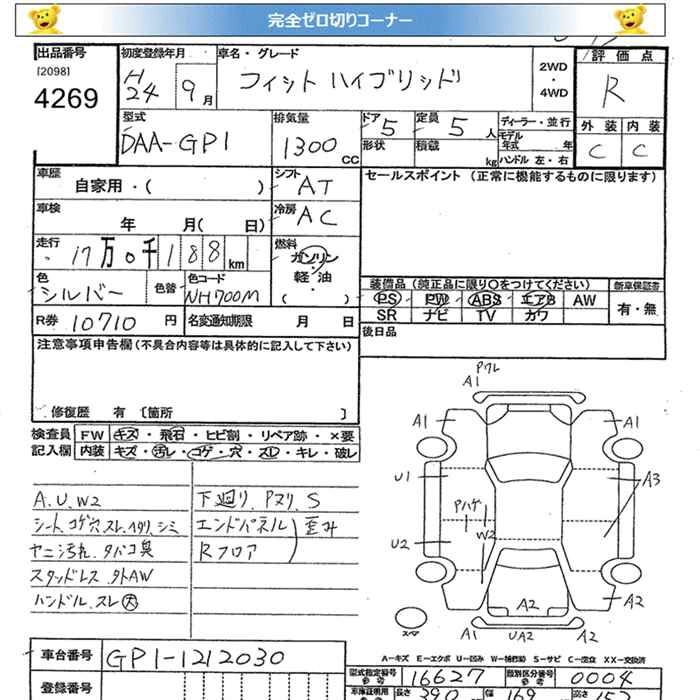 完全ゼロ切りコーナー
出品番号 初度登録年月 車名・グレード 評価点
[2098] 4269 H24 9月 フィットハイブリッド 2WD・4WD R
型式 排気量 ドア 定員 ディーラー・並行 外装 内装
DAA-GP1 1300 CC 5 5人 モデル年式 年 C C
形状 積載 kg ハンドル 左・右
車歴 自家用・( ) シフト AT セールスポイント (正常に機能するものに限ります)
車検 年 月( 日) 冷房 AC
走行 17万0千188km 燃料 ガソリン・軽油 ( )
色 シルバー 色替 色コード NH700M
装備品(純正品に限り○をつけてください) 新車保証書
PS PW ABS エアB AW 有・無
SR ナビ TV カワ
R券 10710円 名変通知期限 月 日 後日品
注意事項申告欄(不具合内容等は具体的に記入して下さい)
修復歴 有 [箇所 ]
検査員記入欄 FW キズ・飛石・ヒビ割・リペア跡・×要
内装 キズ・汚レ・コゲ・穴・スレ・キレ・破レ
A.U.W2 下廻り.Pヌリ.S
シート.コゲ穴.スレ.ヘタリ.シミ エンドパネル 歪み
ヤニ汚れ.タバコ臭 Rフロア
スタッドレス 外AW
ハンドル.スレ 大
Pワレ
A1
A1 A1
U1 A3
Pハゲ
W2
U2
A2 A2 A2
A1 UA2 A2
スペア
A-キズ E-エクボ U-凹み W-補修跡 S-サビ C-腐食 XX-交換済
車台番号 GP1-1212030
型式指定番号 参考 16627 類別区分番号 参考 0004
登録番号 車庫証明用 長さ 390 幅 169 高さ